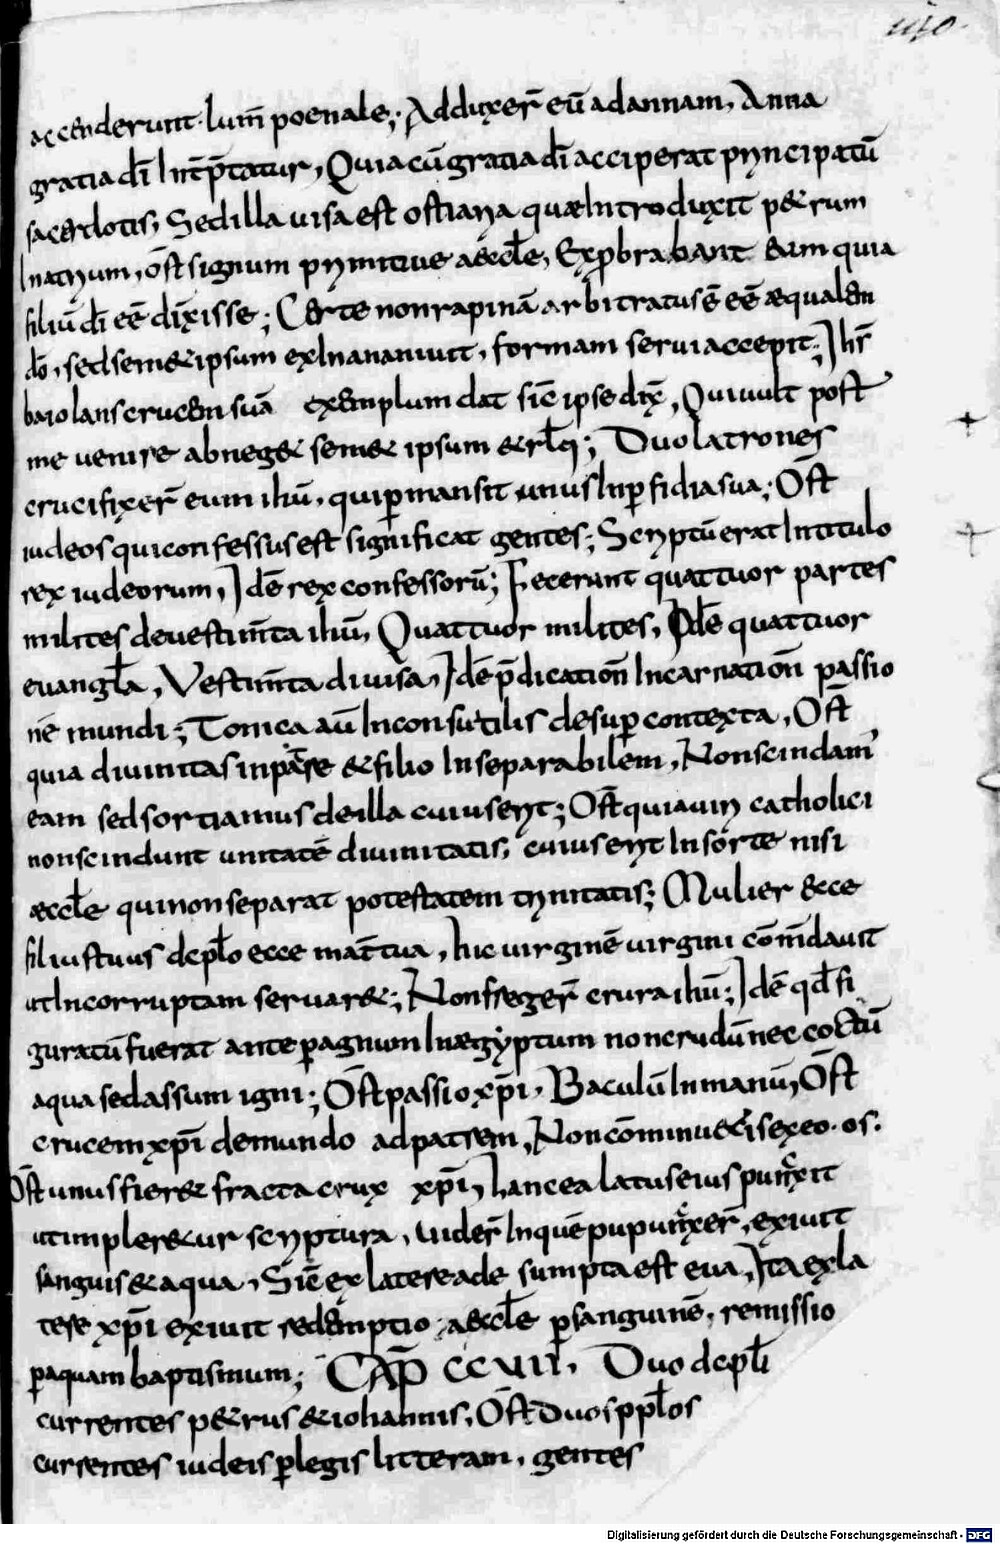 140.
accenderunt. lum̄ poenale; Adduxer̄ eū ad annam, Anna
gratia dī Int̄p̄tatur, Quia cū gratia dī acciperat pryncipatū
sacerdotis, Sed illa visa est ostiaria quae Introduxit petrum
In atrium, ōst signum primitivae aeccłe, Exprobrabant eum quia
filiū dī eē dīxisse; Certe non rapinā arbitratus ē eē aequalem
dō, sed sem& ipsum exInanivit, formam servi accepit; Ihs̄
baiolans crucem suā exemplum dat sic̄ ipse dix̄, Qui vult post
me venire abneg& sem& ipsum & rłq; Duo latrones
crucifixer̄ eum ihū, qui ꝑmansit unus In ꝑfidia sua; Ōst
iudeos qui confessus est significat gentes; Scryptū erat In titulo
rex iudeorum, Idē rex confessorū; Fecerunt quattuor partes
milites de vestim̄ta ihū, Quattuor milites, Idē quattuor
evangła, Vestim̄ta divisa, Idē p̄dication̄ Incarnation̄ passio
nē mundi; Tonica aū Inconsutilis desuꝑ contexta, Ōst
quia divinitas in patre & filio Inseparabilem, Non scindam'
eam sed sortiamus de illa cuius erit; Ōst quia viri catholici
non scindunt unitatē divinitatis, cuius erit In sorte nisi
aeccłe qui non separat potestatem trinitatis; Mulier ecce
filius tuus dcpło ecce mat̄ tua, hic virginē virgini cōm̄davit
ut Incorruptam servar&; Non freger̄ crura ihū; Idē qđ fi
guratū fuerat ante ꝑagmon In aegyptum non crudū nec coctū
aqua sed assum igni; Ōst passio xp̄i, Baculū In manū, Ōst
crucem xp̄i de mundo ad patrem, Non cōminu&is ex eo. os.
Ōst unus fier& fracta crux xp̄i, Lancea latus eius punxit
ut impler&ur scryptura, vider̄ In quē pupunxer̄, exivit
sanguis & aqua, Sic̄ ex latere ade sumpta est eva, Ita ex la
tere xp̄i exivit redemptio aeccłe ꝑ sanguinē, remissio
ꝑ aquam baptismum; CAP̄ CCVII, Duo dcpłi
currentes p&rus & iohannis, Ōst duos ppłos
currentes iudeis ꝑ legis litteram, gentes
Digitalisierung gefördert durch die Deutsche Forschungsgemeinschaft - DFG